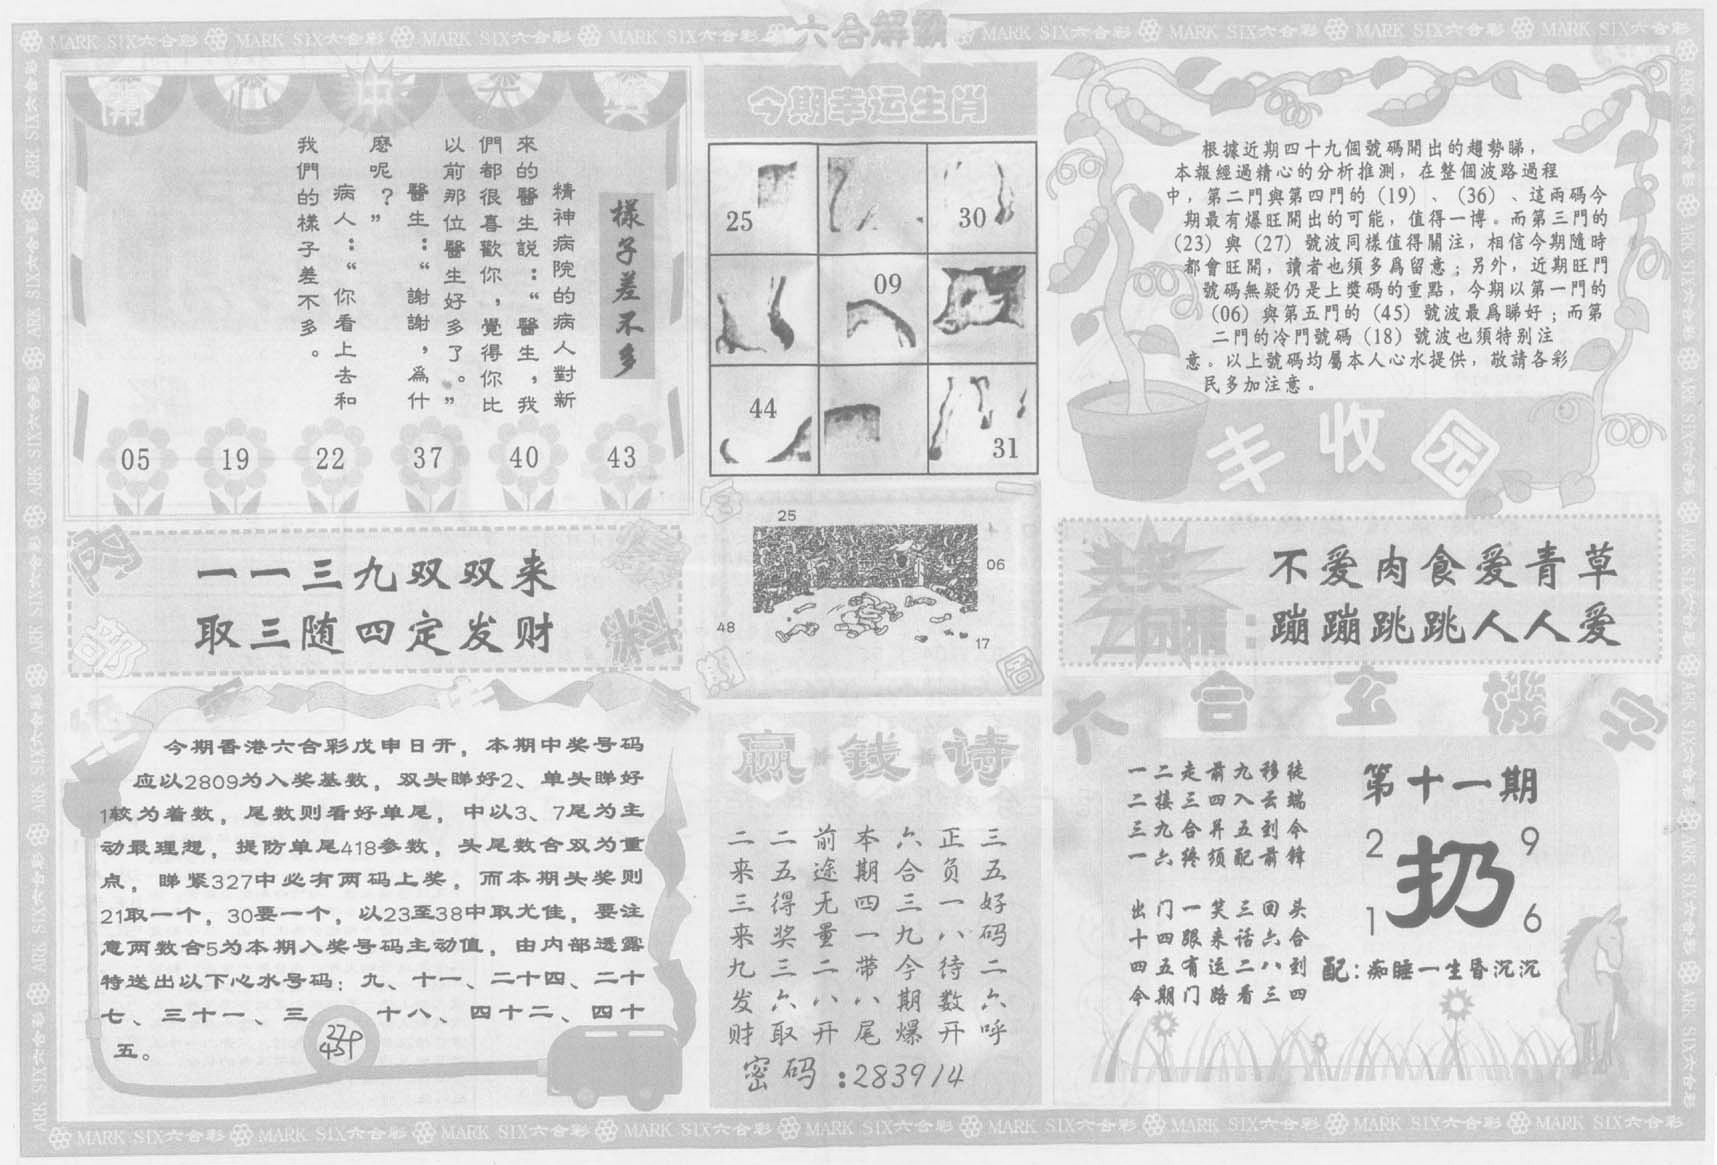 六合解霸
MARK SIX六合彩 MARK SIX六合彩 MARK SIX六合彩 MARK SIX六合彩 MARK SIX六合彩 MARK SIX六合彩 MARK SIX六合彩 MARK SIX六合彩
開心中六獎
樣子差不多
精神病院的病人對新
來的醫生説：“醫生，我
們都很喜歡你，覺得你比
以前那位醫生好多了。”
醫生：“謝謝，爲什
麽呢？”
病人：“你看上去和
我們的樣子差不多。
05 19 22 37 40 43
今期幸运生肖
25 30
09
44 31
根據近期四十九個號碼開出的趨勢睇，
本報經過精心的分析推測，在整個波路過程
中，第二門與第四門的（19）、（36）、這兩碼今
期最有爆旺開出的可能，值得一博。而第三門的
（23）與（27）號波同樣值得關注，相信今期隨時
都會旺開，讀者也須多爲留意；另外，近期旺門
號碼無疑仍是上獎碼的重點，今期以第一門的
（06）與第五門的（45）號波最爲睇好；而第
二門的冷門號碼（18）號波也須特别注
意。以上號碼均屬本人心水提供，敬請各彩
民多加注意。
丰收园
一一三九双双来
取三随四定发财
25
06
48
17
不爱肉食爱青草
蹦蹦跳跳人人爱
今期香港六合彩戊申日开，本期中奖号码
应以2809为入奖基数，双头睇好2、单头睇好
1较为着数，尾数则看好单尾，中以3、7尾为主
动最理想，提防单尾418参数，头尾数合双为重
点，睇紧327中必有两码上奖，而本期头奖则
21取一个，30要一个，以23至38中取尤佳，要注
意两数合5为本期入奖号码主动值，由内部透露
特送出以下心水号码：九、十一、二十四、二十
七、三十一、三 十八、四十二、四十
五。
赢钱诗
三五好码二六呼
正负一八待数开
六合三九今期爆
本期四一带八尾
前途无量二八开
二五得奖三六取
二来三来九发财
密码：283914
六合玄機字
一二走前九移徒
二接三四入云端
三九合昇五到今
一六终须配前锋
出门一笑三回头
十四跟来话六合
四五有运二八到
今期门路看三四
第十一期
2 9
扔
1 6
配：痴睡一生昏沉沉
MARK SIX六合彩 MARK SIX六合彩 MARK SIX六合彩 MARK SIX六合彩 MARK SIX六合彩 MARK SIX六合彩 MARK SIX六合彩 MARK SIX六合彩 MARK SIX六合彩